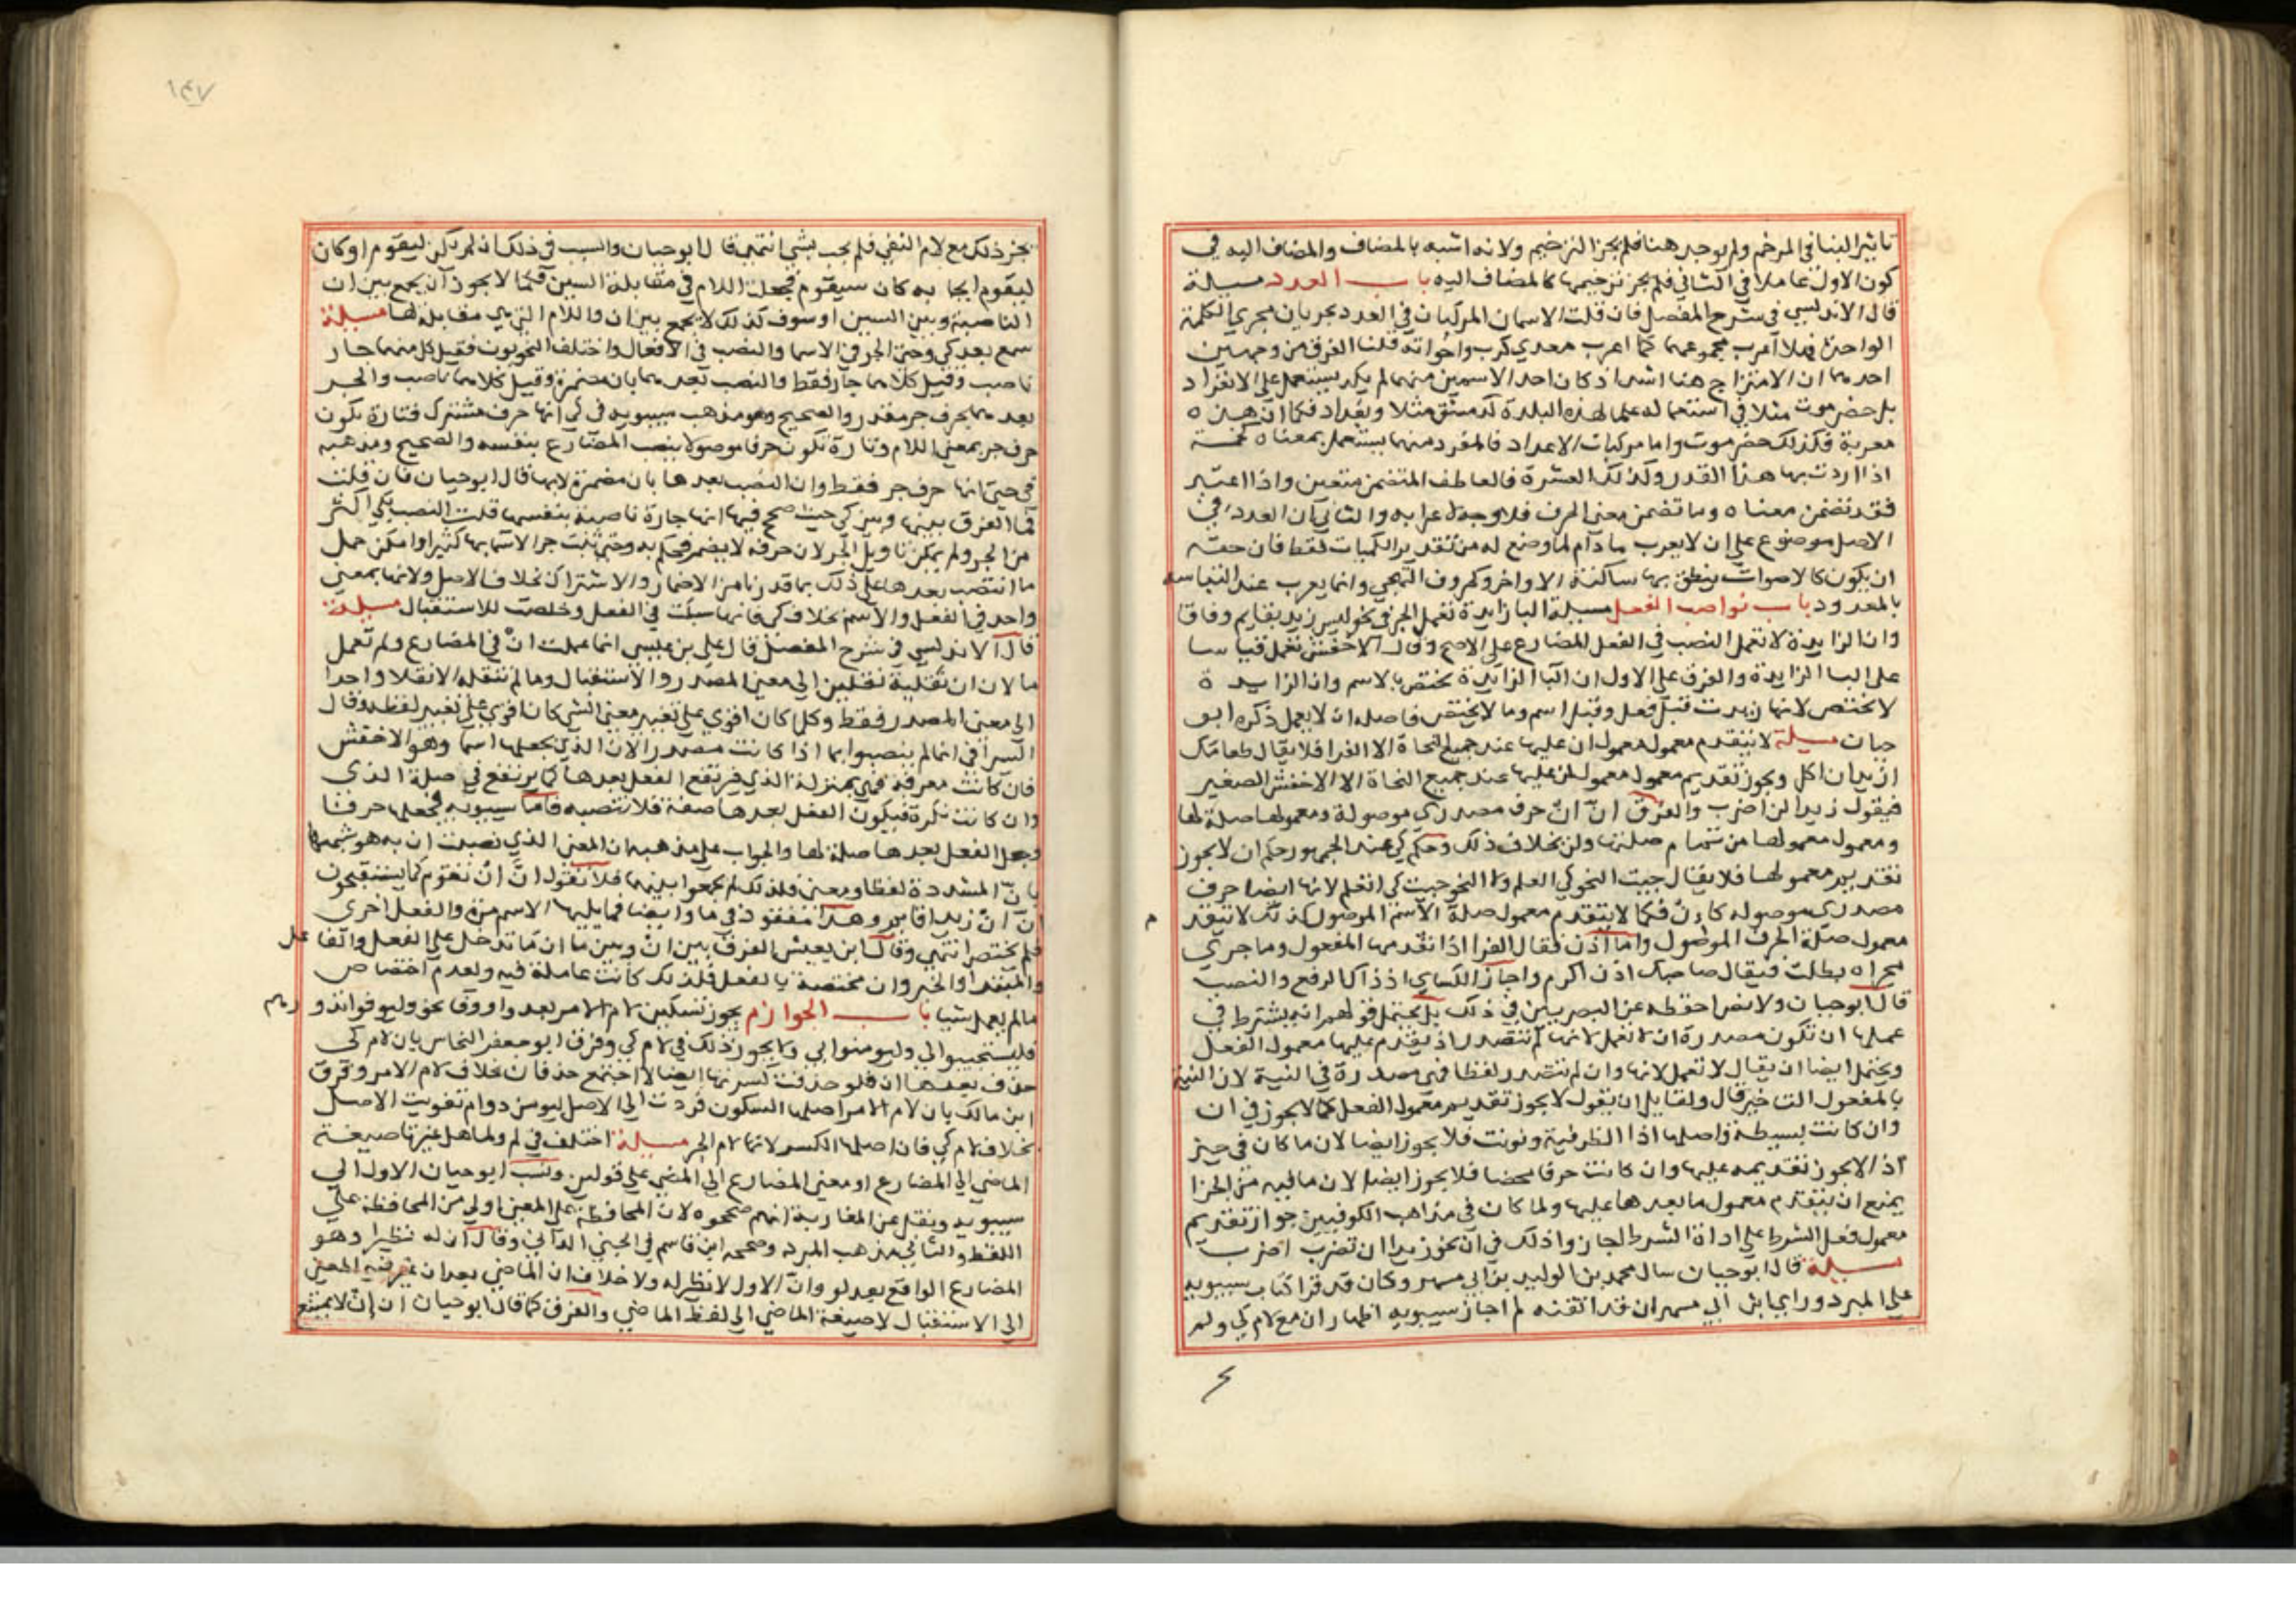 تاثير البنا في المرخم ولم يوجد هنا فلم يجز الترخيم ولانه اشبه بالمضاف والمضاف اليه في
كون الاول عاملا في الثاني فلم يجز ترخيمها كالمضاف اليه باب العدد مسيلة
قال الاندلسي في شرح المفصل فان قلت الاسمان المركبان في العدد يجريان مجري الكلمة
الواحدة فهلا اعرب مجموعهما كما اعرب معدي كرب واخواته قلنا الفرق من وجهين
احدهما ان الامتزاج هنا اشد اذ كان احد الاسمين منهما لم يكد يستعمل علي الانفراد
بل حضرموت مثلا في استعماله علما لهذه البلدة كدمشق مثلا وبغداد فكما ان هذه
معربة فكذلك حضرموت واما مركبات الاعداد فالمفرد منها يستعمل بمعناه كخمسة
اذا اردت بها هذا القدر وكذلك العشرة فالعاطف المتضمن متعين واذا اعتبر
فقد تضمن معناه وما تضمن معني الحرف فلا وجه لاعرابه والثاني ان العدد في
الاصل موضوع علي ان لا يعرب ما دام لما وضع له من تقدير الكميات فقط فان حقه
ان يكون كالاصوات ينطق بها ساكنة الاواخر وكحروف التهجي وانما يعرب عند التباسه
بالمعدود باب نواصب الفعل مسيلة البا الزايدة تعمل الجر في نحو ليس زيد بقايم وفاقا
وان الزايدة لا تعمل النصب في الفعل المضارع علي الاصح وقال الاخفش تعمل قياسا
علي البا الزايدة والفرق علي الاول ان البا الزايدة تختص بالاسم وان الزايدة
لا تختص لانها زيدت قبل فعل وقبل اسم وما لا يختص فاصله ان لا يعمل ذكره ابو
حيان مسيلة لا يتقدم معمول معمول ان عليها عند جميع النحاة الا الفرا فلا يقال طعامك
اريد ان اكل ويجوز تقديم معمول معمول لن عليها عند جميع النحاة الا الاخفش الصغير
فيقول زيدا لن اضرب والفرق ان ان حرف مصدري موصولة ومعمولها صلة لها
ومعمول معمولها من تمام صلتها ولن بخلاف ذلك وحكم كي عند الجمهور حكم ان لا يجوز
تقديم معمولها فلا يقال جيت النحو كي اتعلم ولا النحو جيت كي اتعلم لانها ايضا حرف
مصدري موصوله كان فكما لا يتقدم معمول صلة الاسم الموصول كذلك لا يتقدم
معمول صلة الحرف الموصول واما اذن فقال الفرا اذا تقدمها المفعول وما جري
مجراه بطلت فيقال صاحبك اذن اكرم واجاز الكساي اذ ذاك الرفع والنصب
قال ابو حيان ولا نص احفظه عن البصريين في ذلك بل يحتمل قولهم انه يشترط في
عملها ان تكون مصدرة ان لا تعمل لانها لم تتصدر اذ يقدم عليها معمول الفعل
ويحتمل ايضا ان يقال لا تعمل لانها وان لم تتصدر لفظا فهي مصدرة في النية لان النية
بالمفعول التاخير قال ولقايل ان يقول لا يجوز تقديم معمول الفعل كما لا يجوز في ان
وان كانت بسيطة واصلها اذا الظرفية ونونت فلا يجوز ايضا لان ما كان في حيز
اذ لا يجوز تقديمه عليها وان كانت حرفا محضا فلا يجوز ايضا لان ما فيه من الجزا
يمنع ان يتقدم معمول ما بعدها عليها ولما كان في مذاهب الكوفيين جواز تقديم
معمول فعل الشرط علي اداة الشرط اجازوا ذلك في ان نحو زيدا ان تضرب اضرب
مسيلة قال ابو حيان سال محمد بن الوليد بن ابي مسهر وكان قد قرا كتاب سيبويه
علي المبرد وراي ابن ابي مسهر ان قد اتقنه لم اجاز سيبويه اظهار ان مع لام كي ولم
١٤٧
يجز ذلك مع لام النفي فلم يجب بشي انتهي قال ابو حيان والسبب في ذلك ان لم يكن ليقوم او كان
ليقوم ايجابه كان سيقوم فجعلت اللام في مقابلة السين فكما لا يجوز ان يجمع بين ان
الناصبة وبين السين او سوف كذلك لا يجمع بين ان واللام التي هي مقابلة لها مسيلة
سمع بعد كي وحتي الجر في الاسما والنصب في الافعال واختلف النحويون فقيل كل منهما جار
ناصب وقيل كلاهما جار فقط والنصب بعدهما بان مضمرة وقيل كلاهما ناصب والجر
بعدهما بحرف جر مقدر والصحيح وهو مذهب سيبويه في كي انها حرف مشترك فتارة يكون
حرف جر بمعني اللام وتارة تكون حرفا موصولا ينصب المضارع بنفسه والصحيح ومذهبه
في حتي انها حرف جر فقط وان النصب بعدها بان مضمرة لا بها قال ابو حيان فان قلت
فما الفرق بينها وبين كي حيث صح فيها انها جارة ناصبة بنفسها قلت النصب بكي اكثر
من الجر ولم يمكن تاويل الجر لان حرفه لا يضمر فحكم به وحتي ثبت جر الاسما بها كثيرا وامكن حمل
ما انتصب بعدها علي ذلك بما قدرنا من الاضمار والاشتراك خلاف الاصل ولانها بمعني
واحد في الفعل والاسم بخلاف كي فانها سبكت في الفعل وخلصت للاستقبال مسيلة
قال الاندلسي في شرح المفصل قال علي بن عيسي انما عملت ان في المضارع ولم تعمل
ما لان ان نقلته نقلين الي معني المصدر والاستقبال وما لم تنقله الا نقلا واحدا
الي معني المصدر فقط وكل ما كان اقوي علي تغيير معني الشي كان اقوي علي تغيير لفظه وقال
السيرافي انما لم ينصبوا بما اذا كانت مصدرا لان الذي يجعلها اسما وهو الاخفش
فان كانت معرفة فهي بمنزلة الذي فيرتفع الفعل بعدها كما يرتفع في صلة الذي
وان كانت نكرة فيكون الفعل بعدها صفة فلا تنصبه فاما سيبويه فجعلها حرفا
وجعل الفعل بعدها صلة لها والجواب علي مذهبه ان المعني الذي نصبت ان به هو شبهها
بان المشددة لفظا ومعني فلذلك لم يجمعوا بينهما فلا تقول ان ان تقوم كما يستقبحون
ان ان زيدا قايم وهذا مفقود في ما وايضا فما يليها الاسم مرة والفعل اخري
فلم تختص انتهي وقال ابن يعيش الفرق بين ان وبين ما ان ما تدخل علي الفعل والفاعل
والمبتدا والخبر وان مختصة بالفعل فلذلك كانت عاملة فيه ولعدم اختصاص
ما لم يعمل شيا باب الجوازم يجوز تسكين لام الامر بعد واو وفا نحو وليوفوا نذورهم
فليستجيبوا لي وليومنوا بي ولا يجوز ذلك في لام كي وفرق ابو جعفر النحاس بان لام كي
حذف بعدها ان فلو حذفت كسرتها ايضا لاجتمع حذفان بخلاف لام الامر وفرق
ابن مالك بان لام الامر اصلها السكون فردت الي الاصل ليومن دوام تفويت الاصل
بخلاف لام كي فان اصلها الكسر لانها لام الجر مسيلة اختلف في لم ولما هل غيرتا صيغة
الماضي الي المضارع او معني المضارع الي المضي علي قولين ونسب ابو حيان الاول الي
سيبويه ونقل عن المغاربة انهم صححوه لان المحافظة علي المعني اولي من المحافظة علي
اللفظ والثاني مذهب المبرد وصححه ابن قاسم في الجني الداني وقال ان له نظيرا وهو
المضارع الواقع بعد لو وان الاول لا نظير له ولا خلاف ان الماضي بعد ان غير فيه المعني
الي الاستقبال لا صيغة الماضي الي لفظ الماضي والفرق كما قال ابو حيان ان ان لا يمتنع